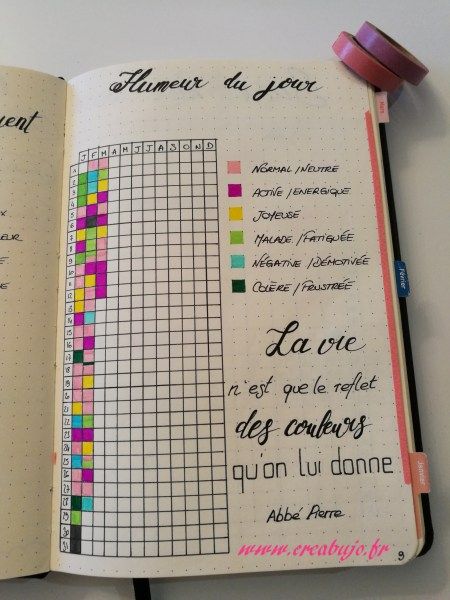 Humeur du jour
J F M A M J J A S O N D
Normal/Neutre
Active/Energique
Joyeuse
Malade/Fatiguée
Négative/Démotivée
Colère/Frustrée
La vie
n'est que le reflet
des couleurs
qu'on lui donne
Abbé Pierre
www.creabujo.fr
9
Février
Janvier